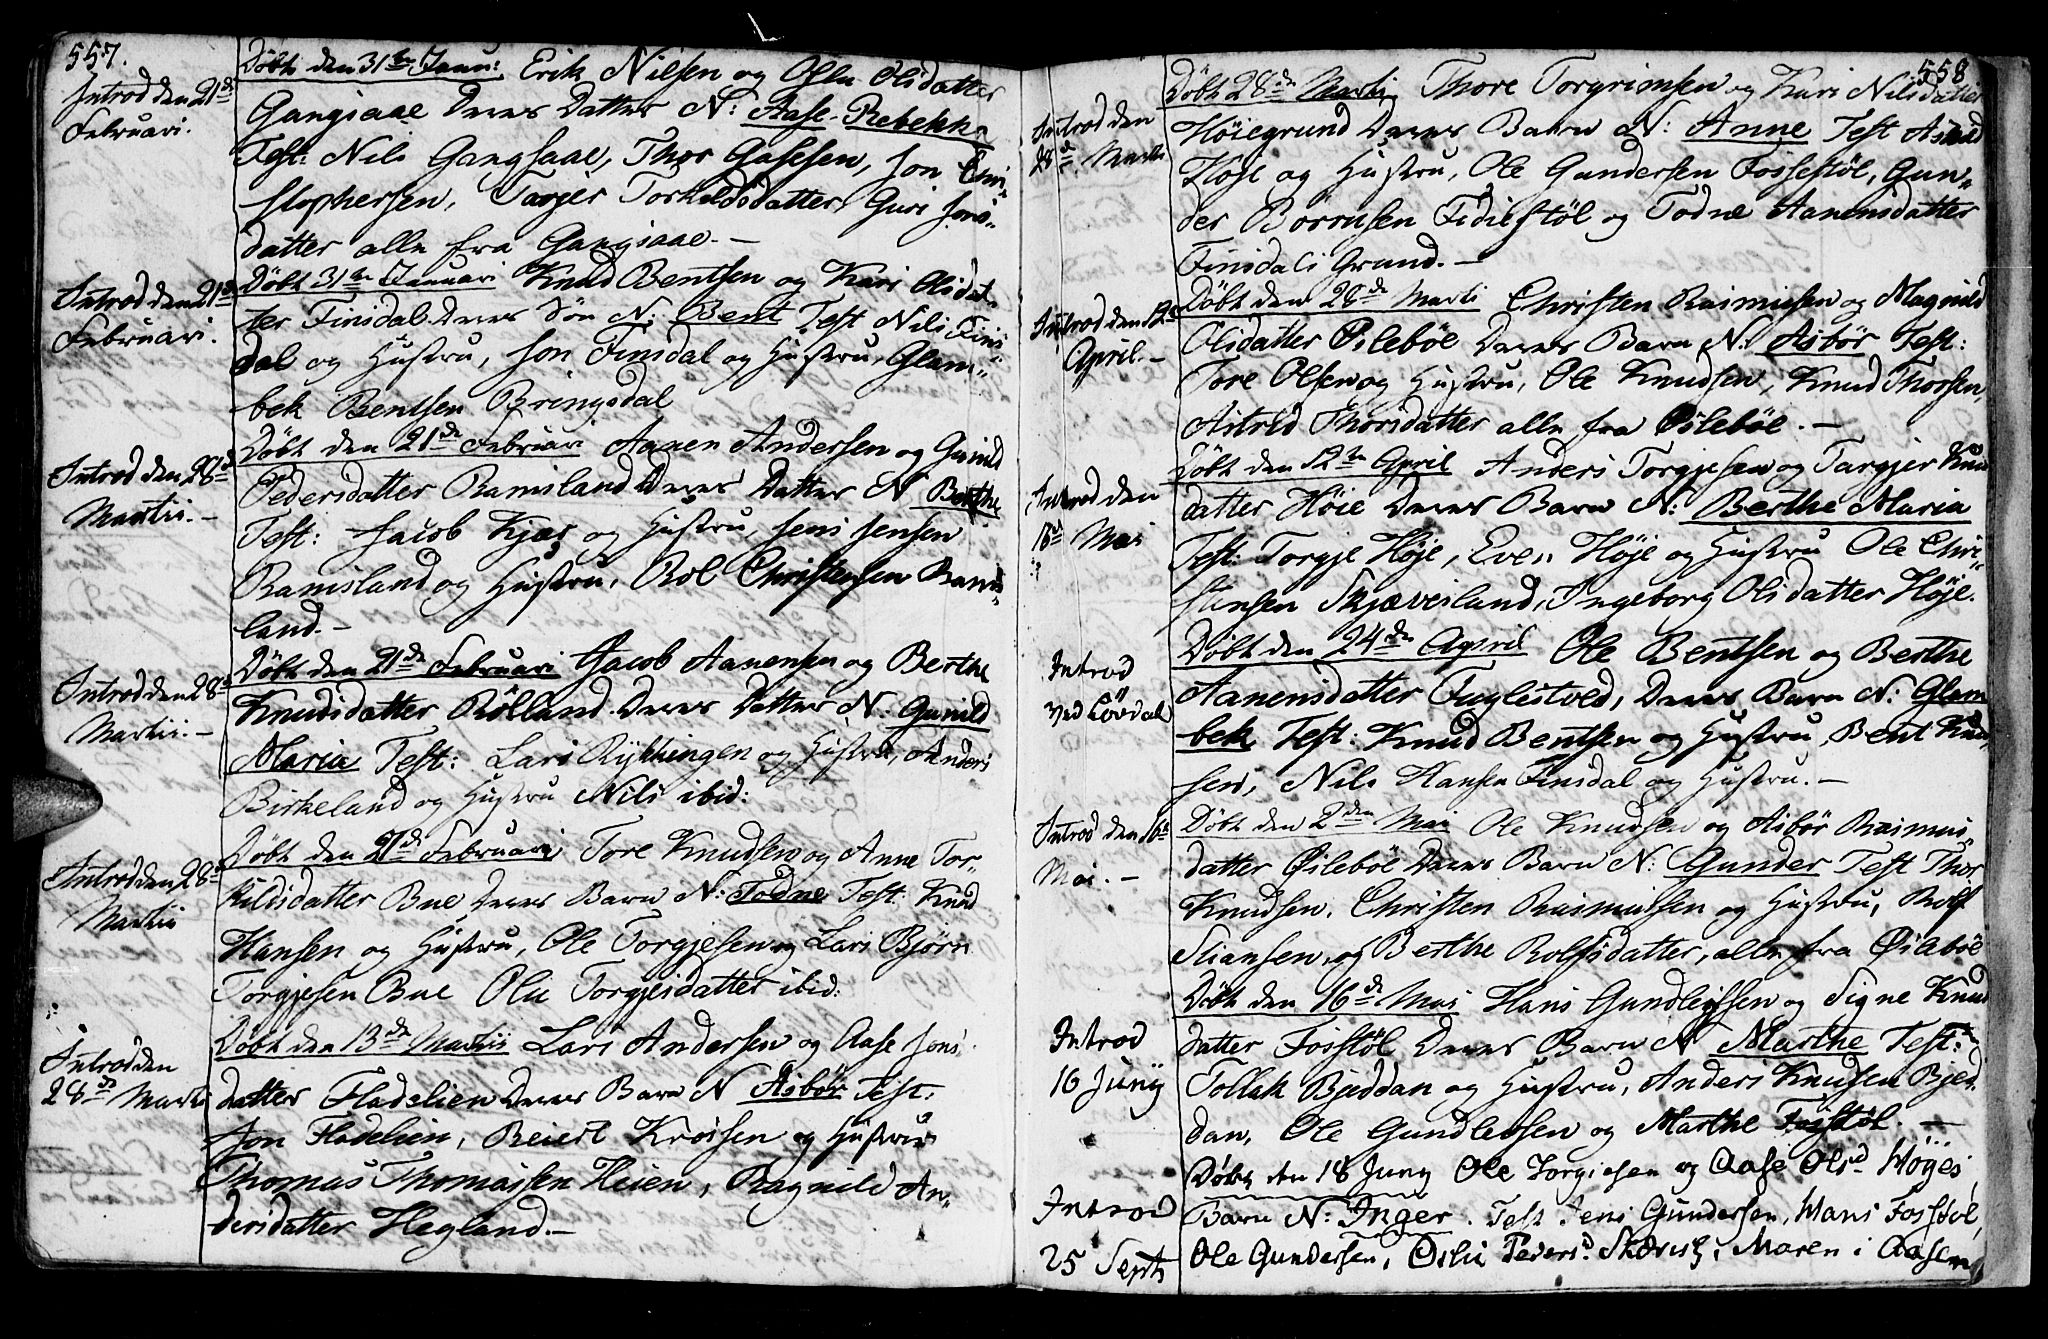 557.
Introd den 21de
Februari.
Døbt den 31te Janu: Erik Nilsen og Olu Olsdatter
Gangsaae Deres Datter N: Aase-Rebekka
Test: Nils Gangsaae, Thor Gasesen, Jon Chri-
stophersen, Targer Torkildsdatter, Guri Jons-
datter alle fra Gangsaae.-
Introd den 21de
Februari.
Døbt 31te Januari Knud Bentsen og Kari Olsdat-
ter Finsdal Deres Søn N: Bent Test Nils Fins-
dal og Hustru, Jon Finsdal og Hustru, Glam-
bek Bentsen Bringsdal
Introd den 28de
Martii.-
Døbt den 21de Februari Aanen Andersen og Gunild
Pedersdatter Ramsland Deres Datter N Berthe
Test: Jacob Kjær og Hustru, Jens Jensen
Ramsland og Hustru, Rol Christensen Rams-
land.-
Introd den 28de
Martii.-
Døbt den 21de Februari Jacob Aanensen og Berthe
Knudsdatter Rølland Deres Datter N. Gunild
Maria Test: Lars Rykkingen og Hustru, Anders
Birkeland og Hustru Nils ibid:
Introd den 28de
Martii
Døbt den 21de Februari Tore Knudsen og Anne Tor-
kildsdatter Bue Deres Barn N: Todne Test: Knud
Hansen og Hustru, Ole Torgjesen og Lars Bjørn
Torgjesen Bue Olu Torgjesdatter ibid:
Introd den
28de Marti
Døbt den 13de Martii Lars Andersen og Aase Jons-
datter Fladelien Deres Barn N Asbør Test:
Jon Fladelien, Beiert Kroisen og Hustru
Thomas Thomassen Heien, Ragnild An-
dersdatter Hegland.-
558
Introd den
28de Martii
Døbt 28de Marti Thore Torgrimsen og Kari Nilsdatter
Høiegrund Deres Barn N: Anne Test
Høje og Hustru, Ole Gundersen Fossestøl, Gun-
der Børrusen Fidiestøl og Todne Aanensdatter
Finsdals Grund.-
Introd den 12te
April.-
Døbt den 28de Marti Christen Rasmusen og Magnild
Olsdatter Øilebøe Deres Barn N: Asbør Test:
Tore Olsen og Hustru, Ole Knudsen, Knud Thorsen,
Astrid Thorsdatter alle fra Øilebøe.-
Introd den
16de Mai
Døbt den 12te April Anders Torgjesen og Targjer Knud
datter Høie Deres Barn N: Berthe Maria
Test: Torgje Høje, Even Høje og Hustru Ole Chri-
stensen Skjæveland, Ingeborg Olsdatter Høje.
Introd
ved Løvdal
Døbt den 24de April Ole Bentsen og Berthe
Aanensdatter Fuglestved, Deres Barn N: Glam
bek Test: Knud Bentsen og Hustru, Bent Knud
sen, Nils Hansen Finsdal og Hustru.-
Introd den 16de
Mai.-
Døbt den 2den Mai Ole Knudsen og Asbør Rasmus
datter Øilebøe Deres Barn N: Gunder Test Thor
Knudsen, Christen Rasmussen og Hustru, Rolf
Stiansen og Berthe Rolfsdatter, alle fra Øilebøe
Introd
16 Junij
Døbt den 16de Mai Hans Gundleifsen og Signe Knud
datter Fosstøl Deres Barn N Marthe Test:
Tollak Bjeddan og Hustru, Anders Knudsen Bjed
dan, Ole Gundlefsen og Marthe Fosstøl.-
Introd
25 Sept
Døbt den 18 Juny Ole Torgiesen og Aase Olsd Høyes
Barn N: Inger. Test Jens Gundersen, Hans Fosstøl,
Ole Gundersen, Oslu Pedersd Maren i Aasen